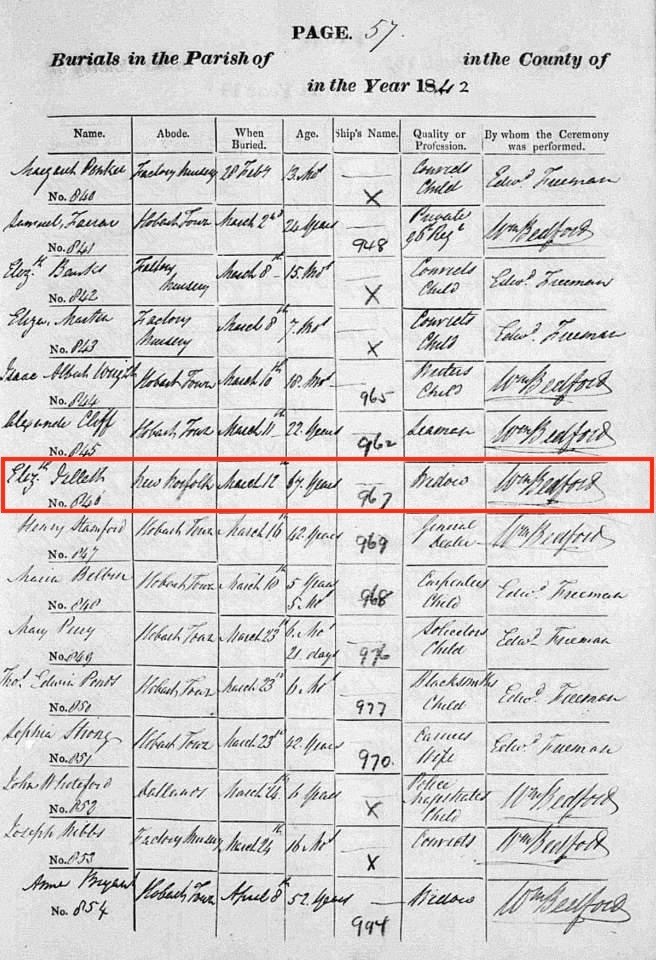 PAGE. 57.
Burials in the Parish of in the County of
in the Year 1842
Name. Abode. When Buried. Age. Ship's Name. Quality or Profession. By whom the Ceremony was performed.
Margaret Factory Nursery 28 Feby 13. Mos Convicts Child Edwd. Freeman
No. 840 X
Samuel Farrar Hobart Town March 2nd 24 Years Private 96 Regt Wm Bedford
No. 841 948
Elizth Banks Factory Nursery March 8th 15. Mos Convicts Child Edwd. Freeman
No. 842 X
Eliza Martin Factory Nursery March 8th 7. Mos Convicts Child Edwd. Freeman
No. 843 X
Isaac Albert Wright Hobart Town March 10th 18. Mos Child Wm Bedford
No. 844 965
Alexander Cliff Hobart Town March 11th 22 Years Seaman Wm Bedford
No. 845 962
Elizth New Norfolk March 12th 67 Years Widow Wm Bedford
No. 846 967
Henry Stamford Hobart Town March 16th 42 Years General Dealer Wm Bedford
No. 847 969
Maria Hobart Town March 5 Years 5. Mos Carpenters Child Edwd. Freeman
No. 848 968
Mary Hobart Town March 23rd 6. Mos 21 days Solicitors Child Edwd. Freeman
No. 849 976
Thos. Edwin Hobart Town March 23rd 6. Mos Blacksmiths Child Edwd. Freeman
No. 850 977
Sophia Strong Hobart Town March 23rd 42 Years Wife Edwd. Freeman
No. 851 970.
John Whiteford March 24th 6 Years Police Magistrates Child Wm Bedford
No. 852 X
Joseph Factory Nursery March 24th 16. Mos Convicts Wm Bedford
No. 853 X
Anne Bryant Hobart Town April 8th 52 Years Widow Wm Bedford
No. 854 994